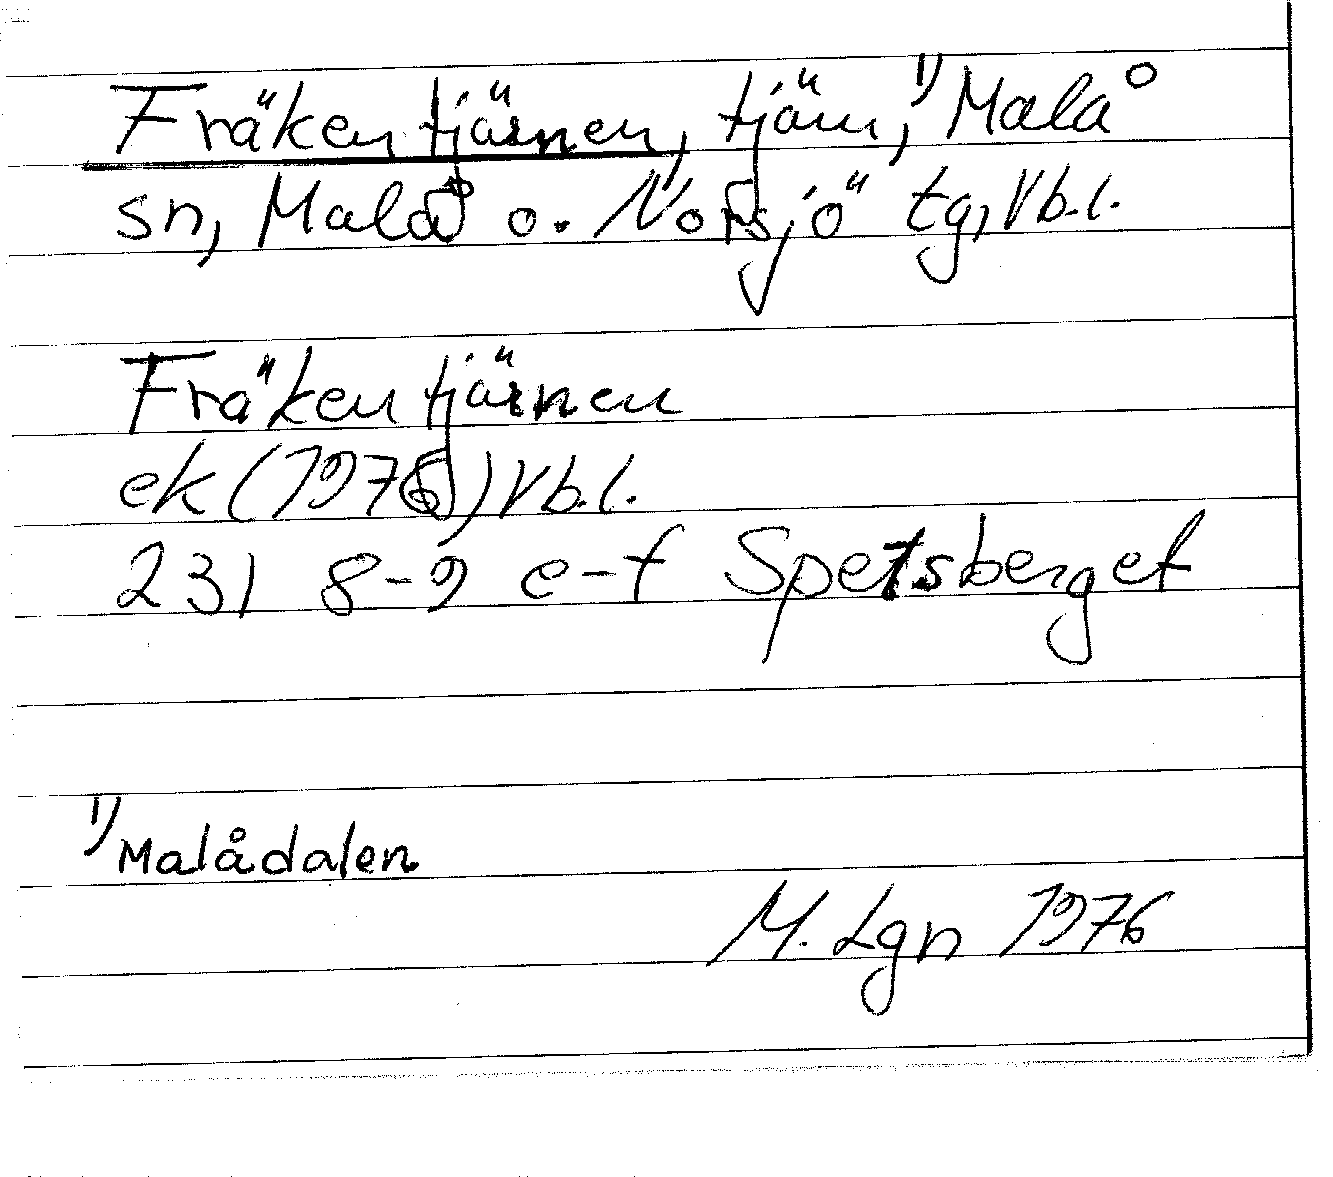 Fräkentjärnen, tjärn, 1) Malå
sn, Malå o. Norsjö tg, Vb.l.
Fräkentjärnen
ek (1976) Vb.l.
231 8-9 e-f Spetsberget
1) Malådalen
M. Lgn 1976